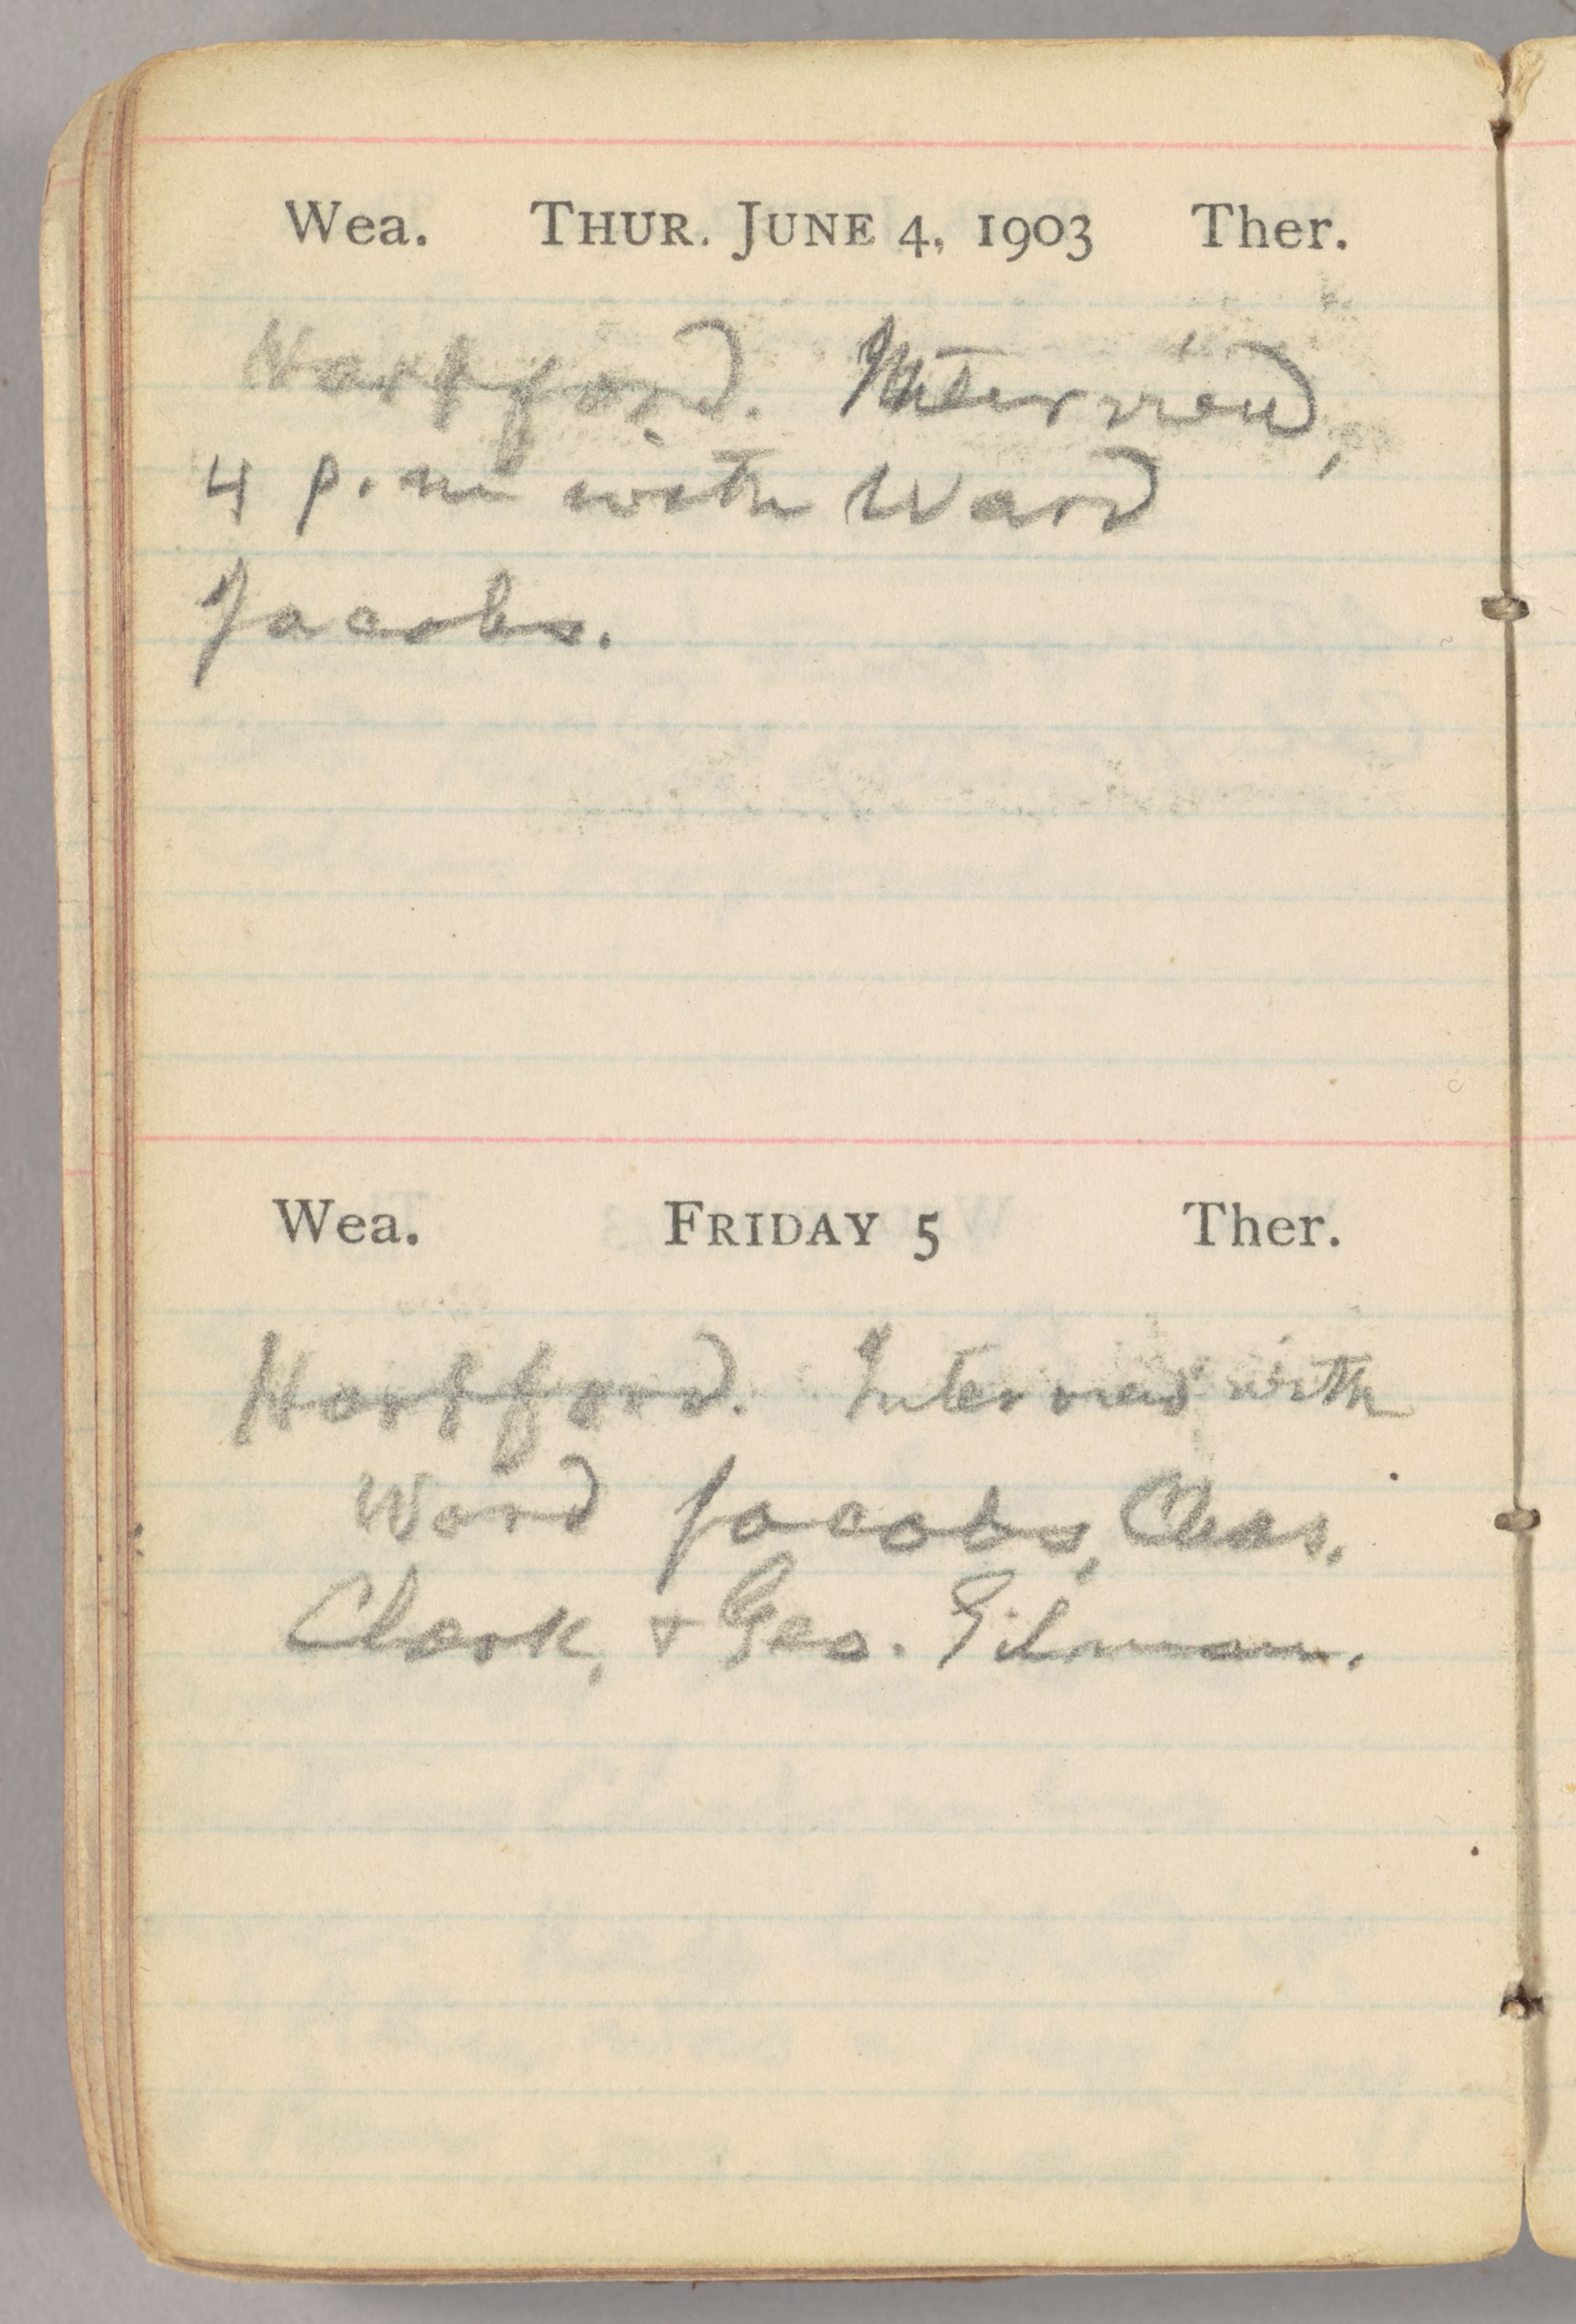 Wea. THUR. JUNE 4, 1903 Ther.
Hartford. Interview,
4 p.m with Ward
Jacobs.
Wea. FRIDAY 5 Ther.
Hartford. Interview with
Ward Jacobs, Chas.
Clark, + Geo. Gilman.